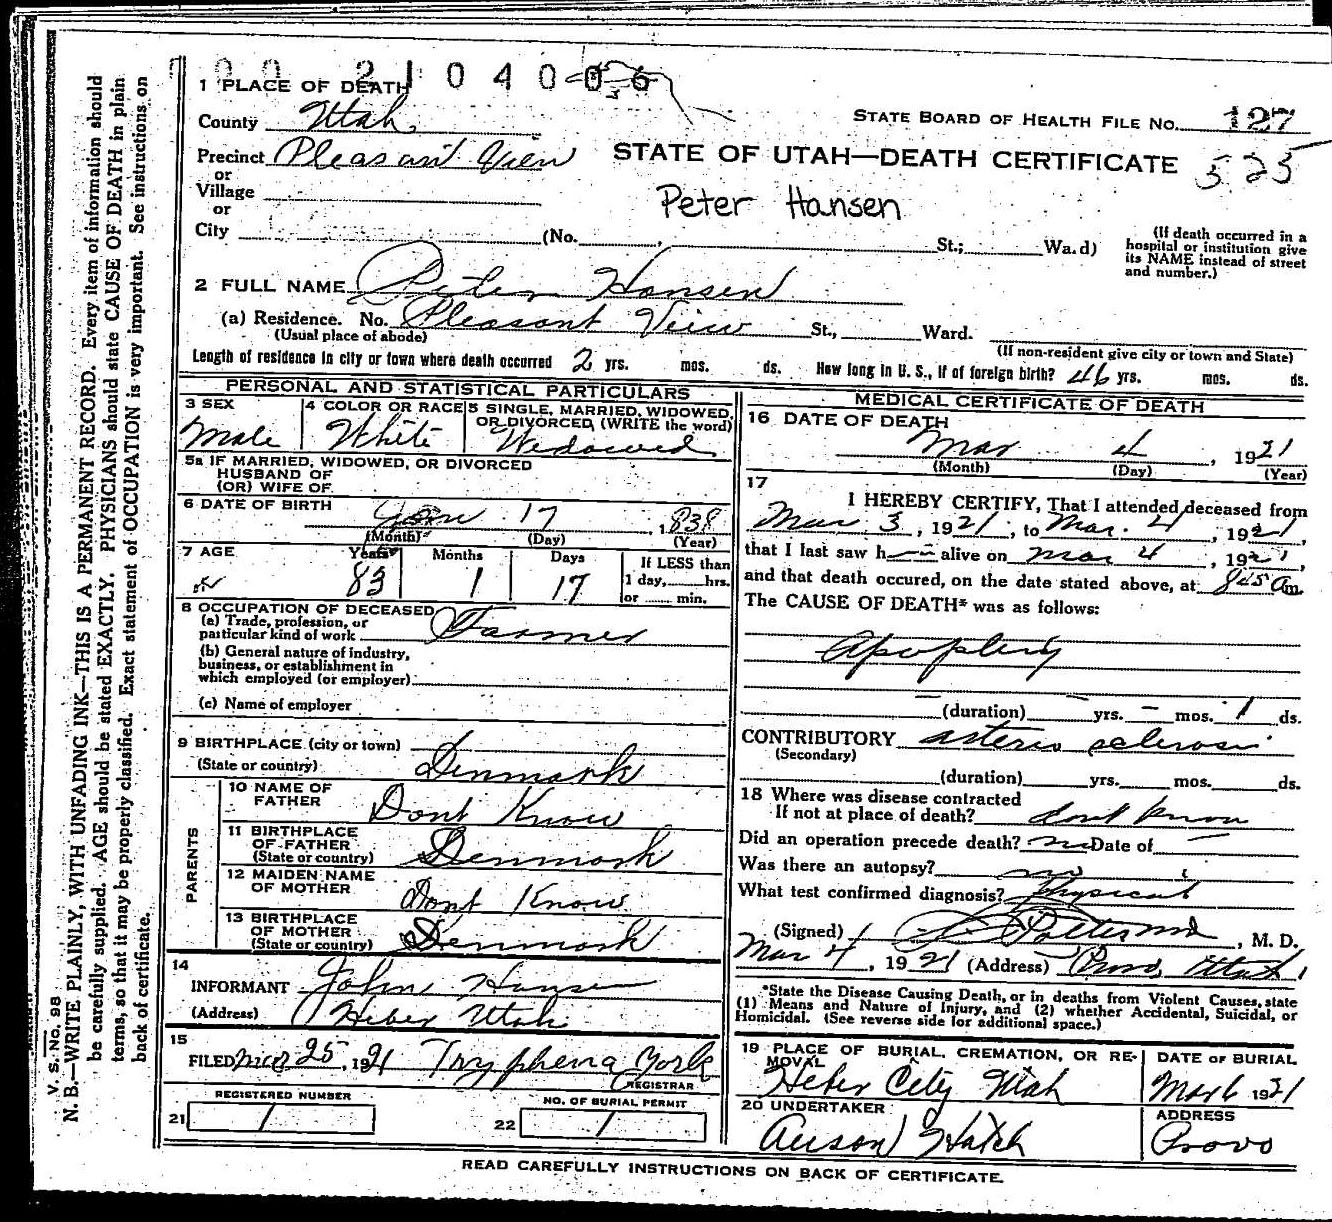 2104006
1 PLACE OF DEATH
County Utah
STATE BOARD OF HEALTH FILE NO. 127
Precinct Pleasant View
STATE OF UTAH—DEATH CERTIFICATE 525
or
Village
Peter Hansen
or
City (No. , St.; Ward)
(If death occurred in a hospital or institution give its NAME instead of street and number.)
2 FULL NAME Peter Hansen
(a) Residence. No. Pleasant View St., Ward.
(Usual place of abode)
(If non-resident give city or town and State)
Length of residence in city or town where death occurred 2 yrs. mos. ds. How long in U. S., if of foreign birth? 46 yrs. mos. ds.
PERSONAL AND STATISTICAL PARTICULARS
3 SEX
Male
4 COLOR OR RACE
White
5 SINGLE, MARRIED, WIDOWED,
OR DIVORCED, (WRITE the word)
Widowed
5a IF MARRIED, WIDOWED, OR DIVORCED
HUSBAND OF
(OR) WIFE OF
6 DATE OF BIRTH Jan 17, 1838
(Month) (Day) (Year)
7 AGE
Years Months Days
If LESS than
83 1 17
1 day, hrs.
or min.
8 OCCUPATION OF DECEASED
(a) Trade, profession, or
particular kind of work Farmer
(b) General nature of industry,
business, or establishment in
which employed (or employer)
(c) Name of employer
9 BIRTHPLACE (city or town)
(State or country) Denmark
PARENTS
10 NAME OF
FATHER Dont Know
11 BIRTHPLACE
OF FATHER
(State or country) Denmark
12 MAIDEN NAME
OF MOTHER Dont Know
13 BIRTHPLACE
OF MOTHER
(State or country) Denmark
14
INFORMANT John Hansen
(Address) Heber Utah
15
FILED Mar 25, 1921 Tryphena York
REGISTRAR
REGISTERED NUMBER
21 1
NO. OF BURIAL PERMIT
22 1
MEDICAL CERTIFICATE OF DEATH
16 DATE OF DEATH
Mar 4, 1921
(Month) (Day) (Year)
17
I HEREBY CERTIFY, That I attended deceased from
Mar 3, 1921, to Mar. 4, 1921,
that I last saw h alive on Mar 4, 1921,
and that death occured, on the date stated above, at 845 Am.
The CAUSE OF DEATH* was as follows:
Apoplexy
(duration) — yrs. — mos. 1 ds.
CONTRIBUTORY arterio sclerosis
(Secondary)
(duration) yrs. mos. ds.
18 Where was disease contracted
If not at place of death? dont know
Did an operation precede death? no Date of —
Was there an autopsy? no
What test confirmed diagnosis? Physical
(Signed) , M. D.
Mar 4, 1921 (Address) Provo, Utah
*State the Disease Causing Death, or in deaths from Violent Causes, state
(1) Means and Nature of Injury, and (2) whether Accidental, Suicidal, or
Homicidal. (See reverse side for additional space.)
19 PLACE OF BURIAL, CREMATION, OR RE-
MOVAL
Heber City Utah
DATE OF BURIAL
Mar 6 1921
20 UNDERTAKER
Anson Hatch
ADDRESS
Provo
READ CAREFULLY INSTRUCTIONS ON BACK OF CERTIFICATE.
V. S. No. 98
N. B.—WRITE PLAINLY, WITH UNFADING INK—THIS IS A PERMANENT RECORD. Every item of information should
be carefully supplied. AGE should be stated EXACTLY. PHYSICIANS should state CAUSE OF DEATH in plain
terms, so that it may be properly classified. Exact statement of OCCUPATION is very important. See instructions on
back of certificate.